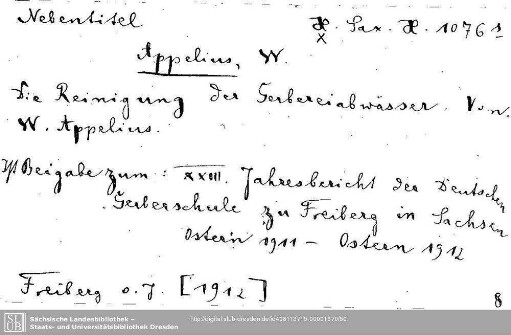 Nebentitel
H. Sax. H. 1076 s
x
Appelius, W.
Die Reinigung der Gerbereiabwässer. Von
W. Appelius.
Ist Beigabe zum: XXIII. Jahresbericht der Deutschen
Gerberschule zu Freiberg in Sachsen
Ostern 1911 - Ostern 1912
Freiberg o. J. [1912]
8
Sächsische Landesbibliothek –
Staats- und Universitätsbibliothek Dresden